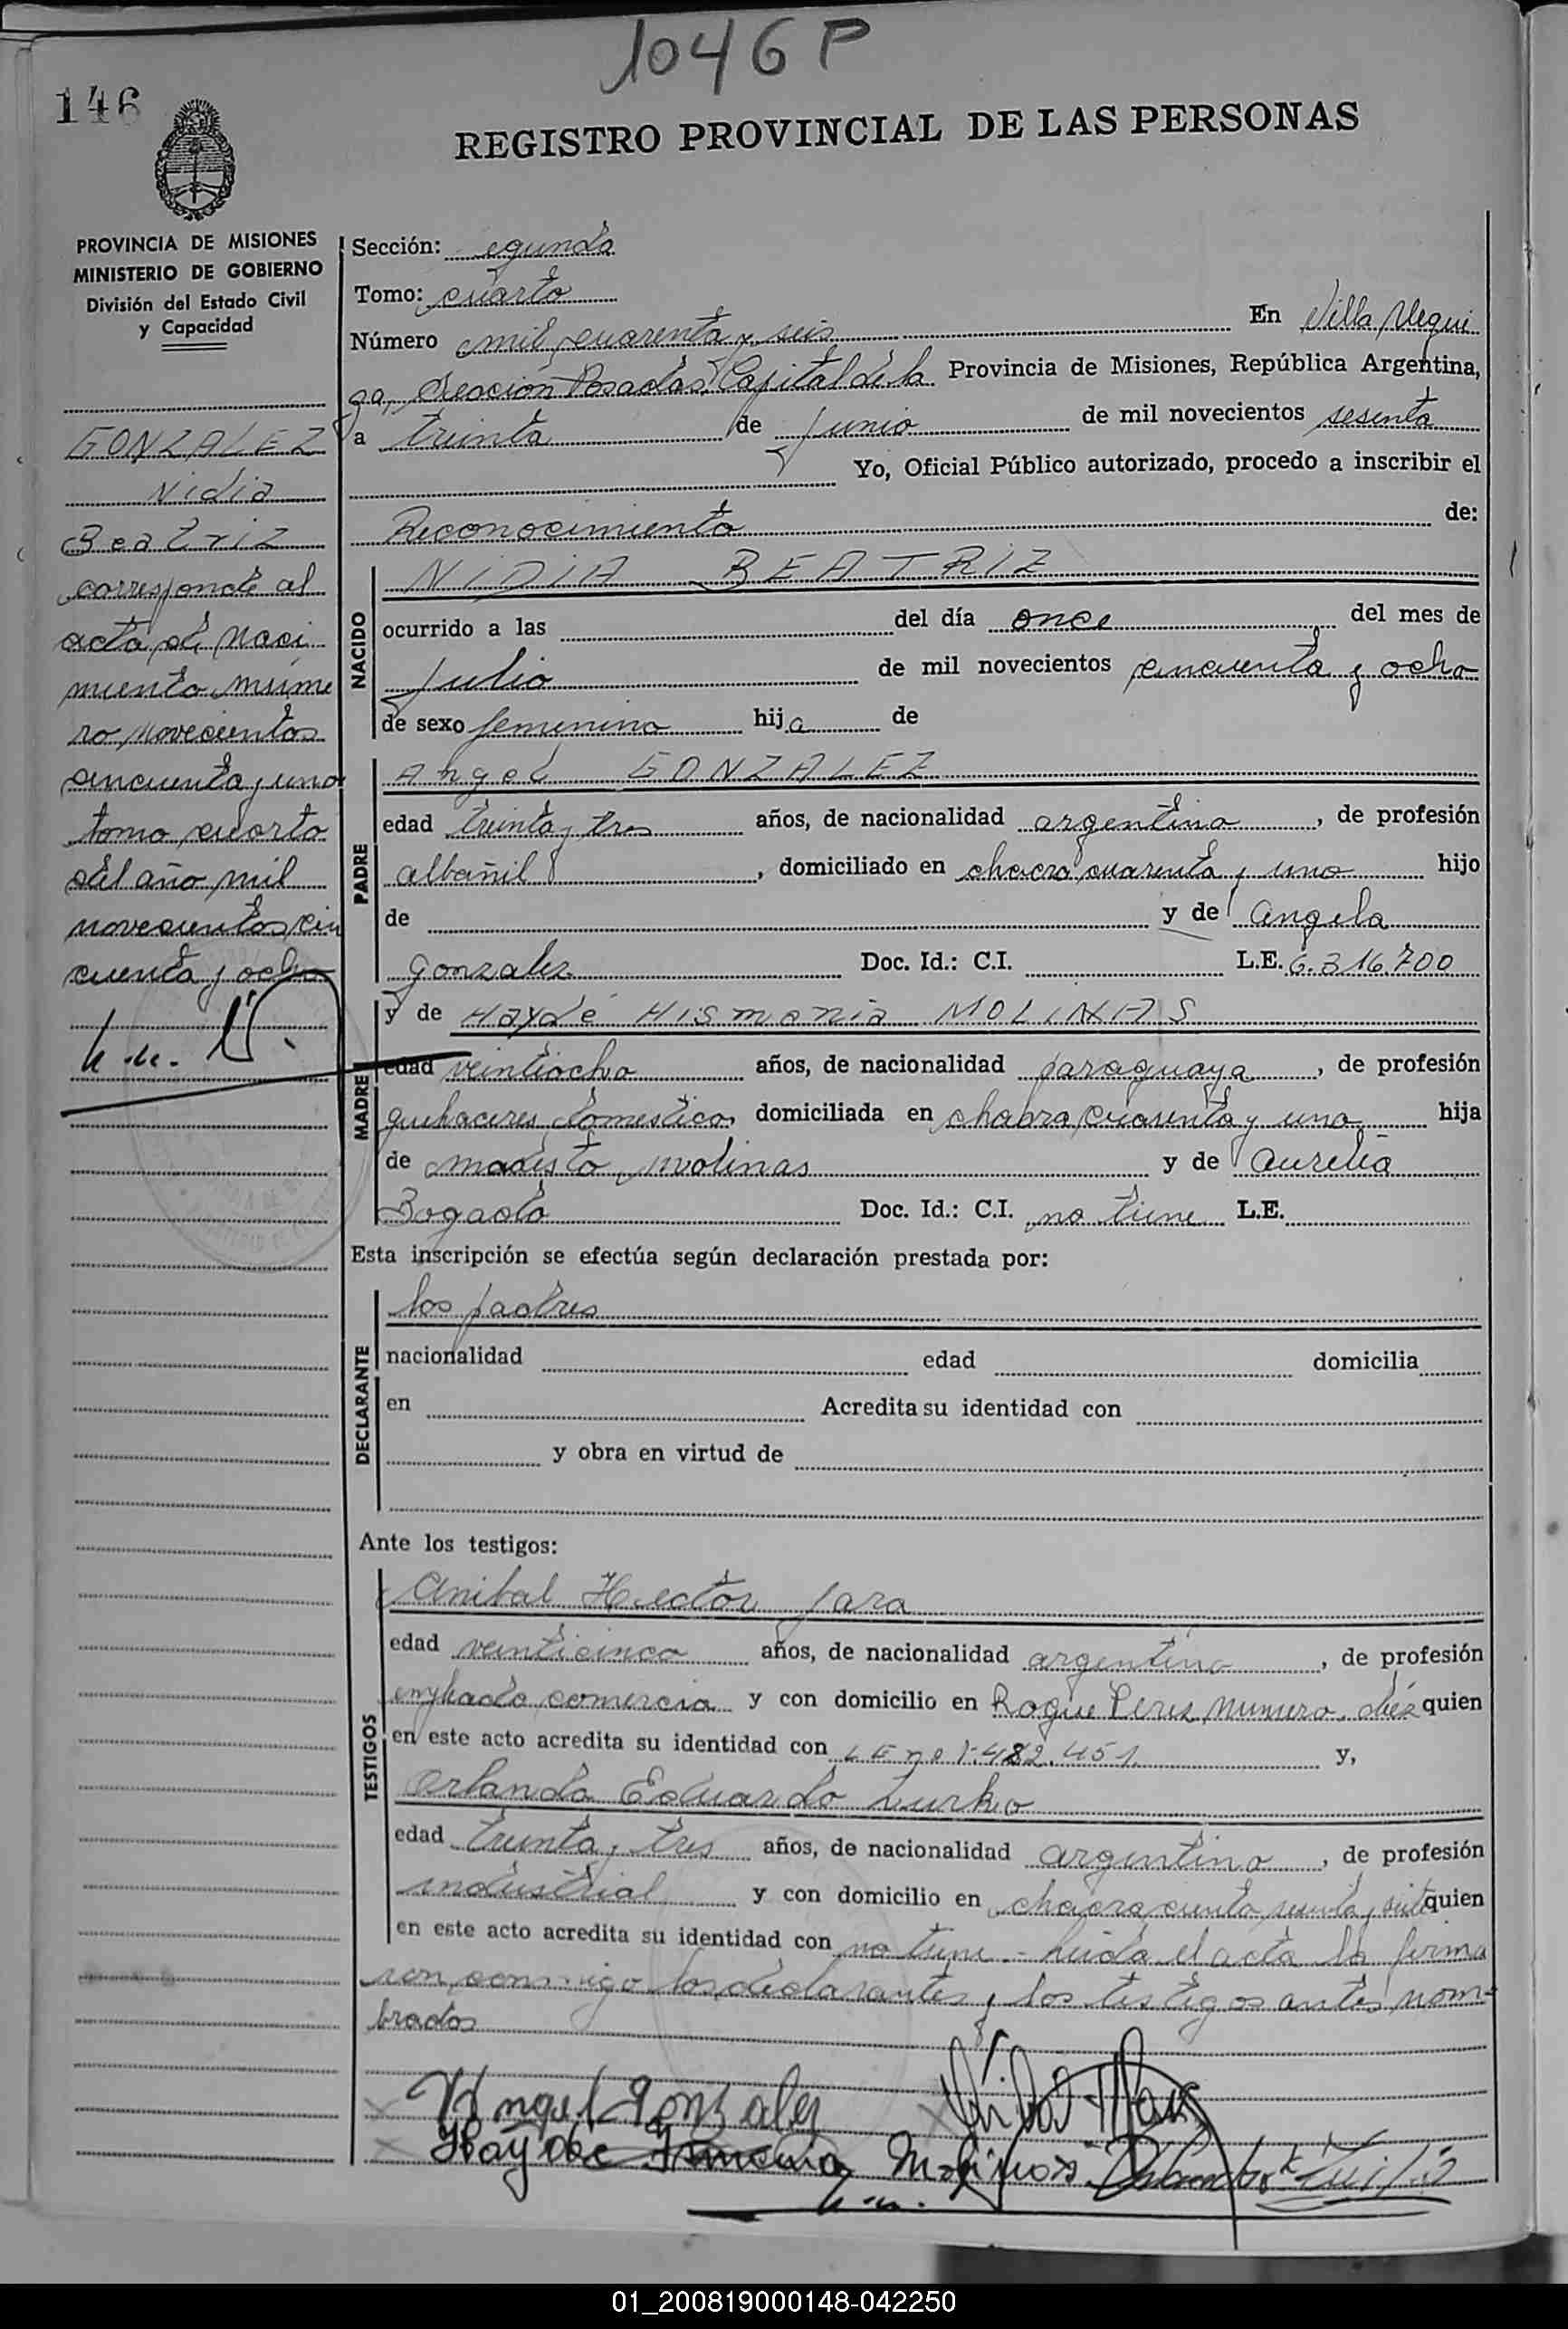 1046 P
146
REGISTRO PROVINCIAL DE LAS PERSONAS
PROVINCIA DE MISIONES
MINISTERIO DE GOBIERNO
División del Estado Civil
y Capacidad
GONZALEZ
Nidia
Beatriz
corresponde al
acta de naci
miento núme
ro novecientos
cincuenta y uno
tomo cuarto
del año mil
novecientos cin
cuenta y ocho
Sección: segunda
Tomo: cuarto
Número mil cuarenta y seis En Villa Urqui
za, Sección Posadas, Capital de la Provincia de Misiones, República Argentina,
a treinta de junio de mil novecientos sesenta
Yo, Oficial Público autorizado, procedo a inscribir el
Reconocimiento de:
NACIDO
NIDIA BEATRIZ
ocurrido a las del día once del mes de
julio de mil novecientos cincuenta y ocho
de sexo femenino hija de
PADRE
Angel GONZALEZ
edad treinta y tres años, de nacionalidad argentino, de profesión
albañil, domiciliado en chacra cuarenta y uno hijo
de y de Angela
Gonzalez Doc. Id.: C.I. L.E. 6.316.700
MADRE
y de Haydé Hismenia MOLINAS
edad veintiocho años, de nacionalidad paraguaya, de profesión
quehaceres domesticos domiciliada en chacra cuarenta y uno hija
de Modesto Molinas y de Aurelia
Bogado Doc. Id.: C.I. no tiene L.E.
Esta inscripción se efectúa según declaración prestada por:
DECLARANTE
los padres
nacionalidad edad domicilia
en Acredita su identidad con
y obra en virtud de
Ante los testigos:
TESTIGOS
Anibal Hector Jara
edad veinticinco años, de nacionalidad argentino, de profesión
empleado comercio y con domicilio en Roque Perez numero diez quien
en este acto acredita su identidad con LE no 7.482.451 y,
Orlando Eduardo Zurko
edad treinta y tres años, de nacionalidad argentino, de profesión
industrial y con domicilio en chacra ciento sesenta y siete quien
en este acto acredita su identidad con no tiene.- Leida el acta la firma
ron conmigo los declarantes y los testigos antes nom-
brados
Angel Gonzalez
Haydée Ismenia Molinas
01_200819000148-042250